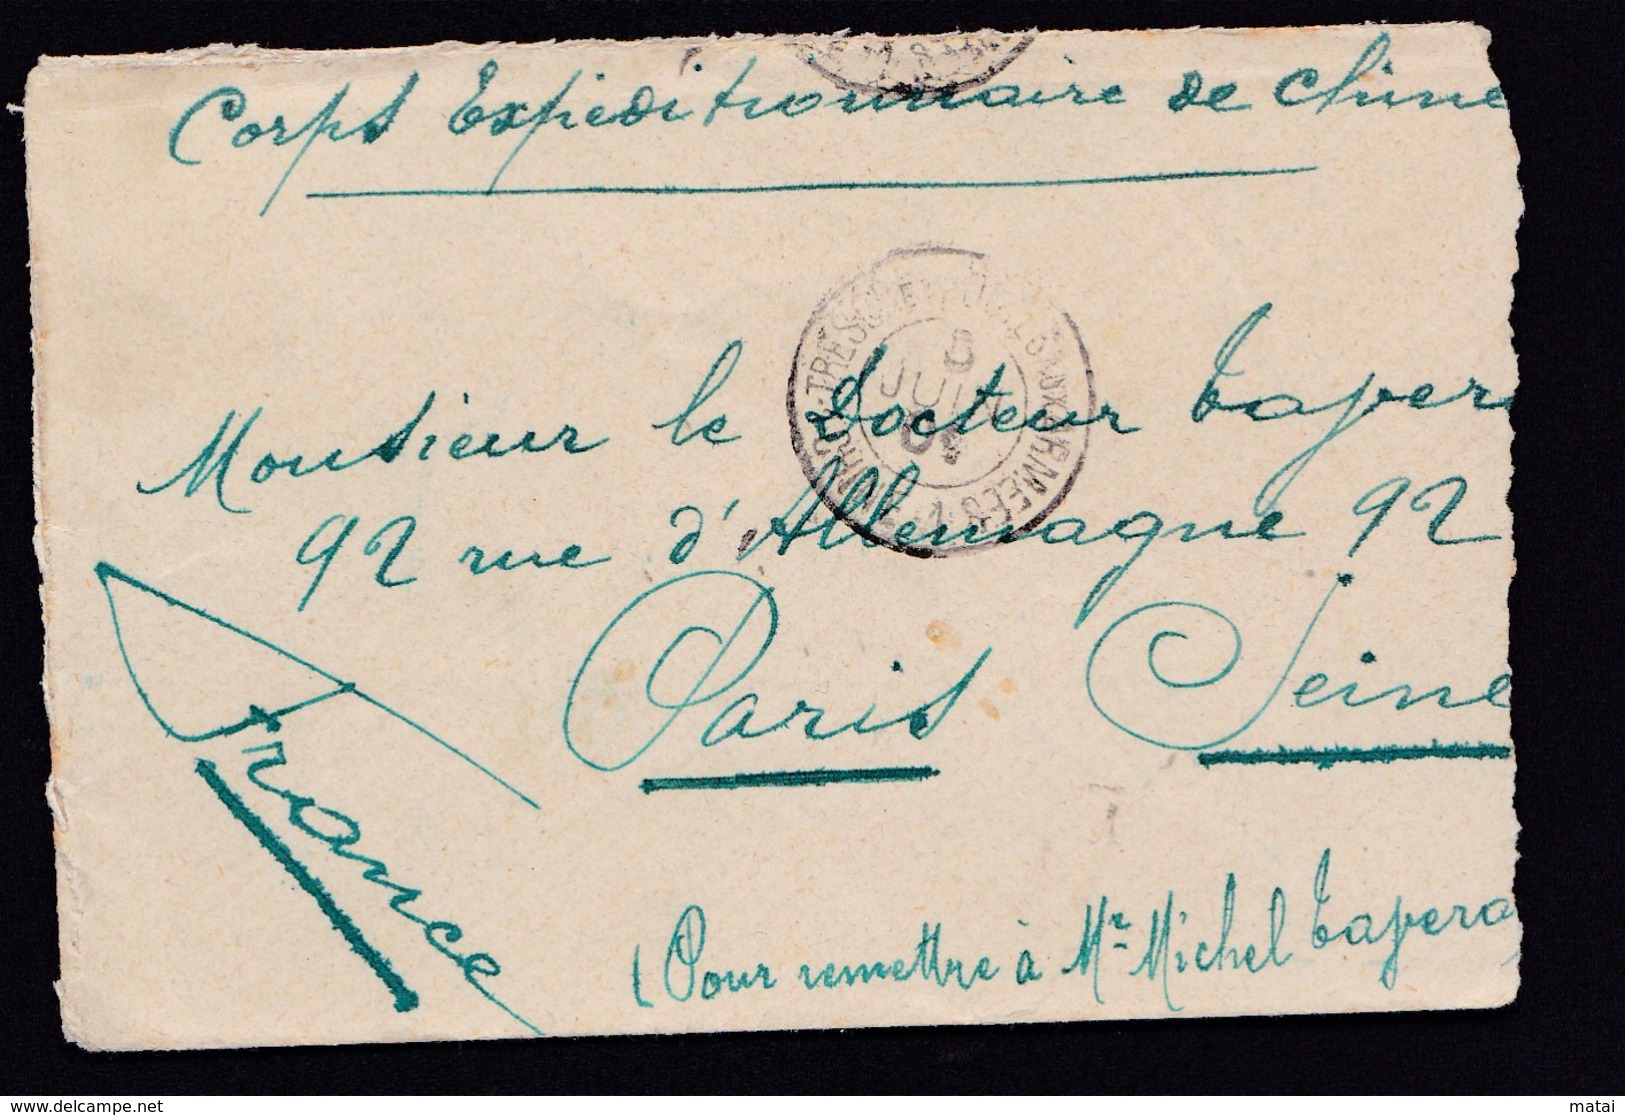 Corps Expéditionnaire de Chine
TRESOR ET POSTES AUX ARMEES
8
JUIN
Monsieur le Docteur Taper
92 rue d'Allemagne 92
Paris Seine
France
(Pour remettre à Mr Michel Tapera
www.delcampe.net
matai